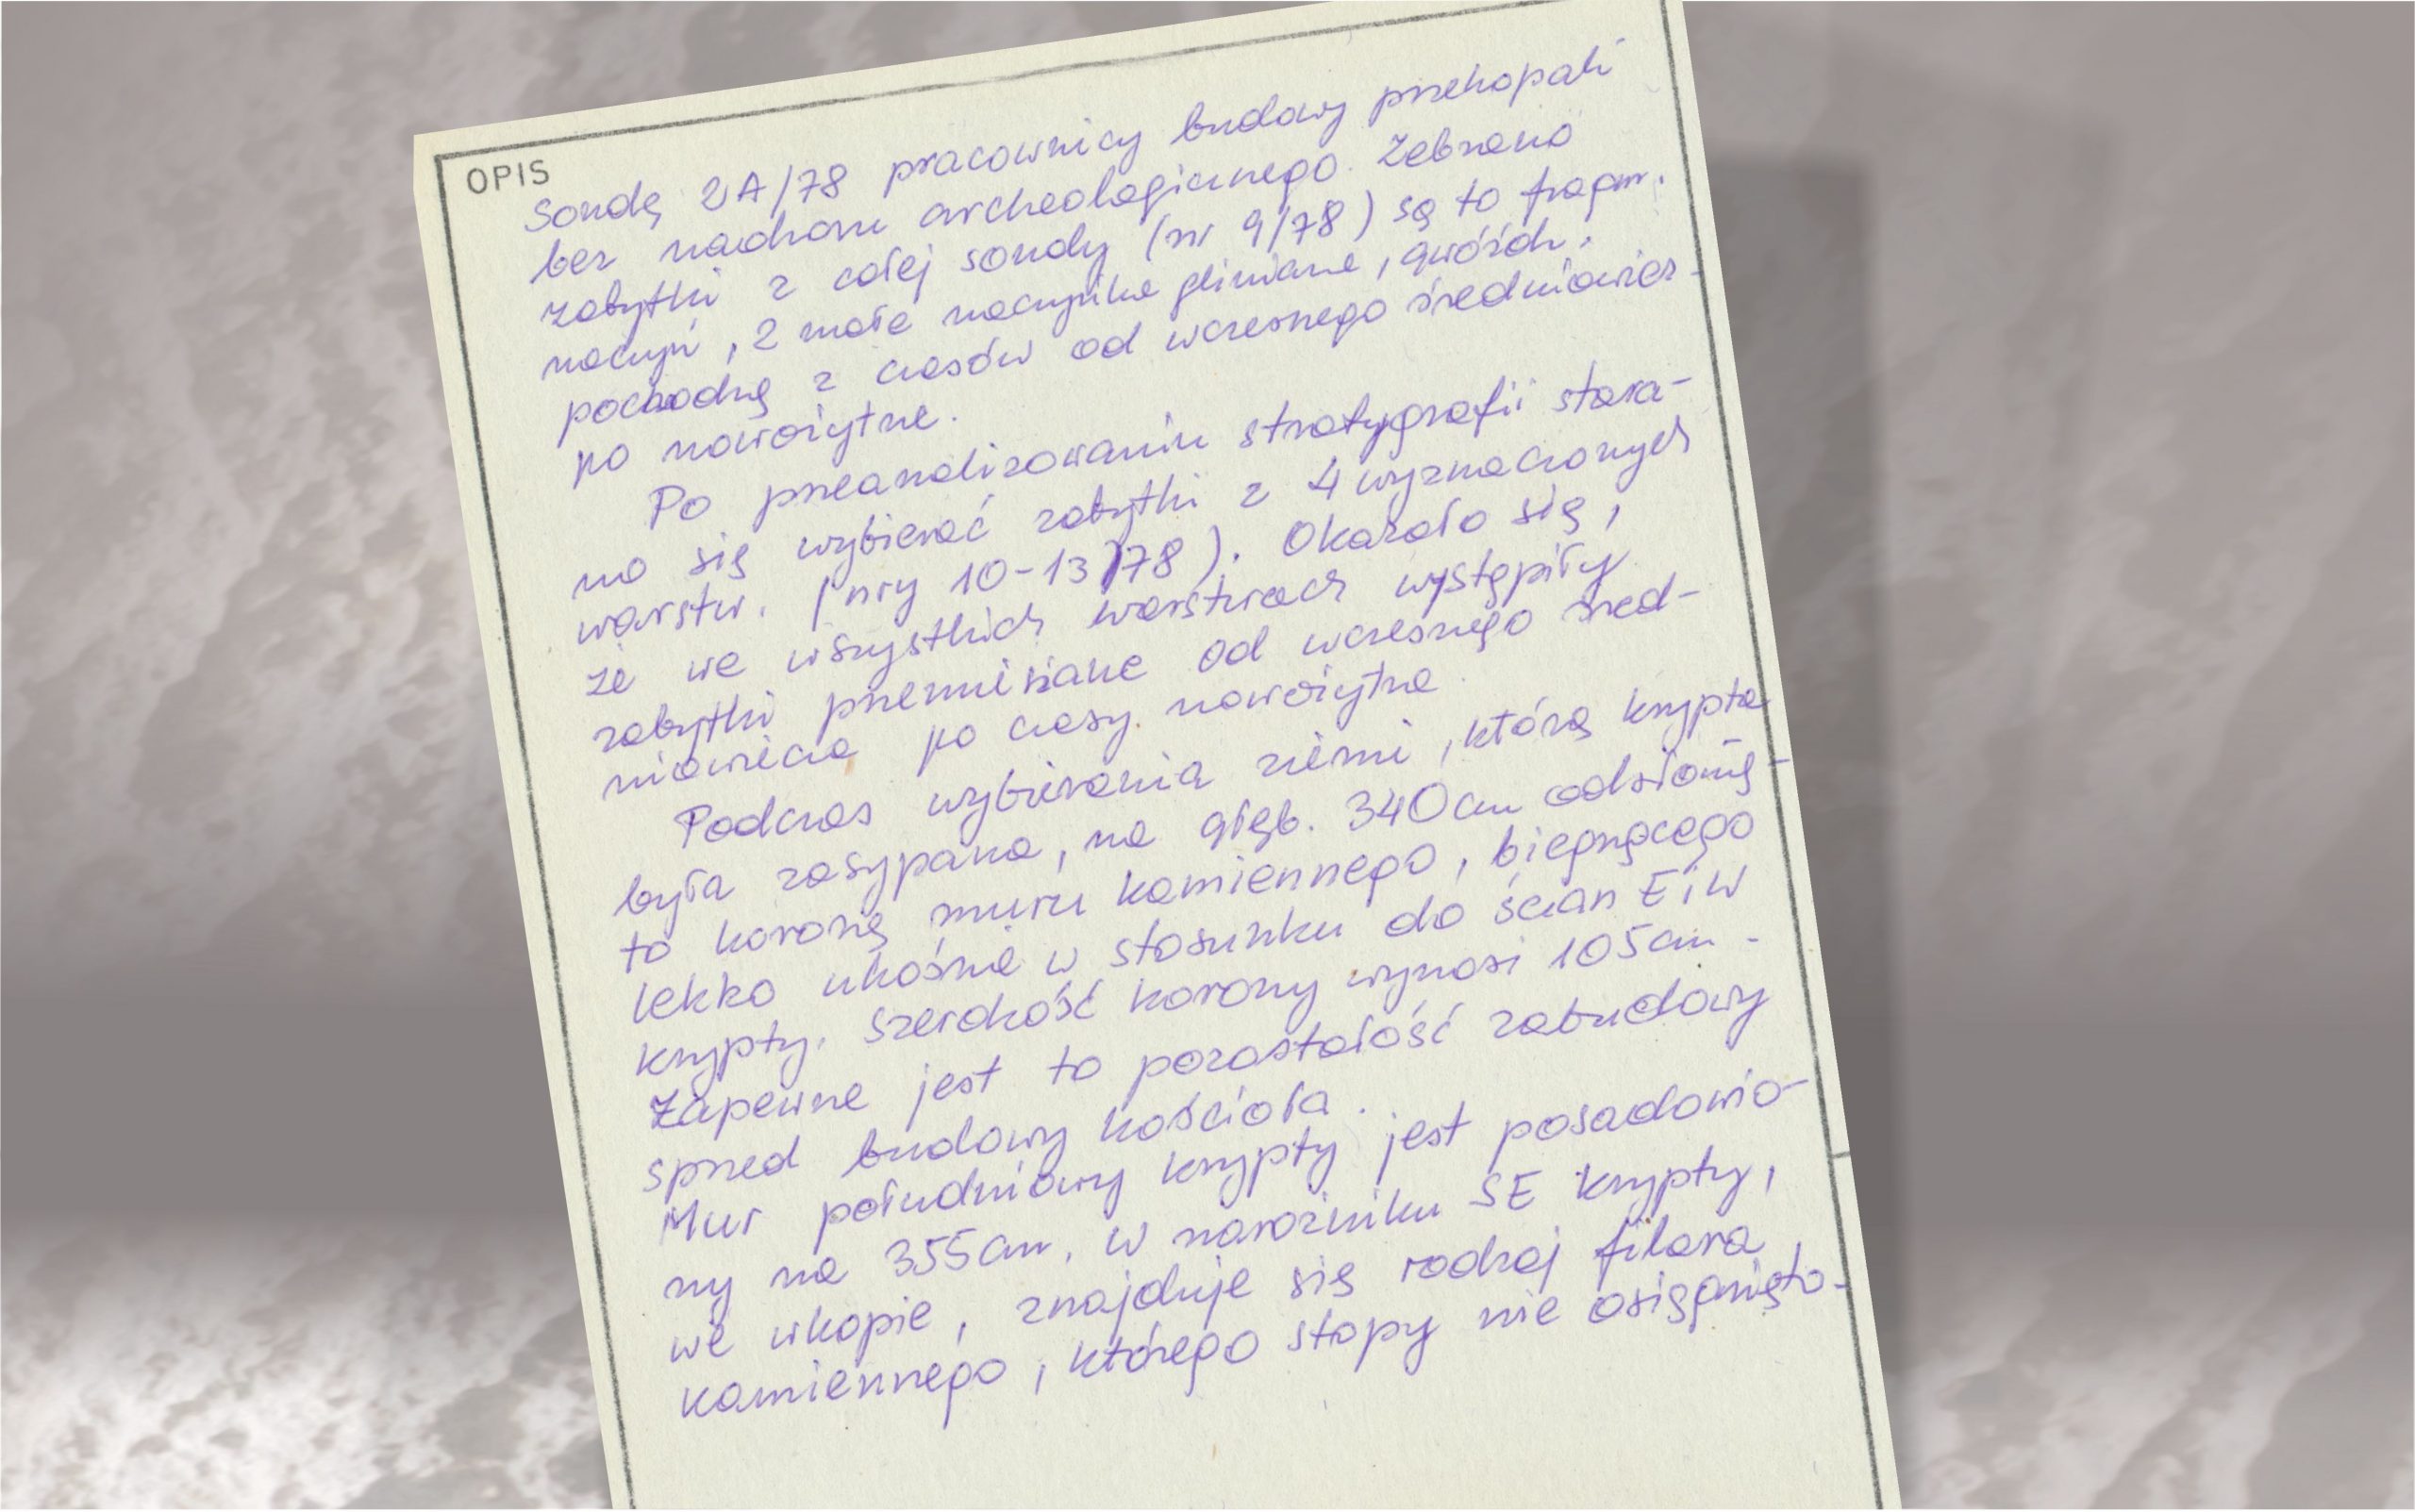 OPIS
Sondę 2A/78 pracownicy budowy przekopali
bez nadzoru archeologicznego. Zebrano
zabytki z całej sondy (nr 9/78) są to fragm.
naczyń, 2 małe naczyńka gliniane, gwóźdź,
pochodzą z czasów od wczesnego średniowiecz-
po nowożytne.
Po przeanalizowaniu stratygrafii stara-
no się wybierać zabytki z 4 wyznaczonych
warstw. (nry 10-13/78). Okazało się,
że we wszystkich warstwach wystąpiły
zabytki przemieszane od wczesnego śred-
niowiecza po czasy nowożytne.
Podczas wybierania ziemi, którą krypta
była zasypana, na głęb. 340cm odsłonię-
to koronę muru kamiennego, biegnącego
lekko ukośnie w stosunku do ścian E i W
krypty. Szerokość korony wynosi 105cm.
Zapewne jest to pozostałość zabudowy
sprzed budowy kościoła.
Mur południowy krypty jest posadowio-
ny na 355cm, w narożniku SE krypty,
we wkopie, znajduje się rodzaj filara
kamiennego, którego stopy nie osiągnięto.